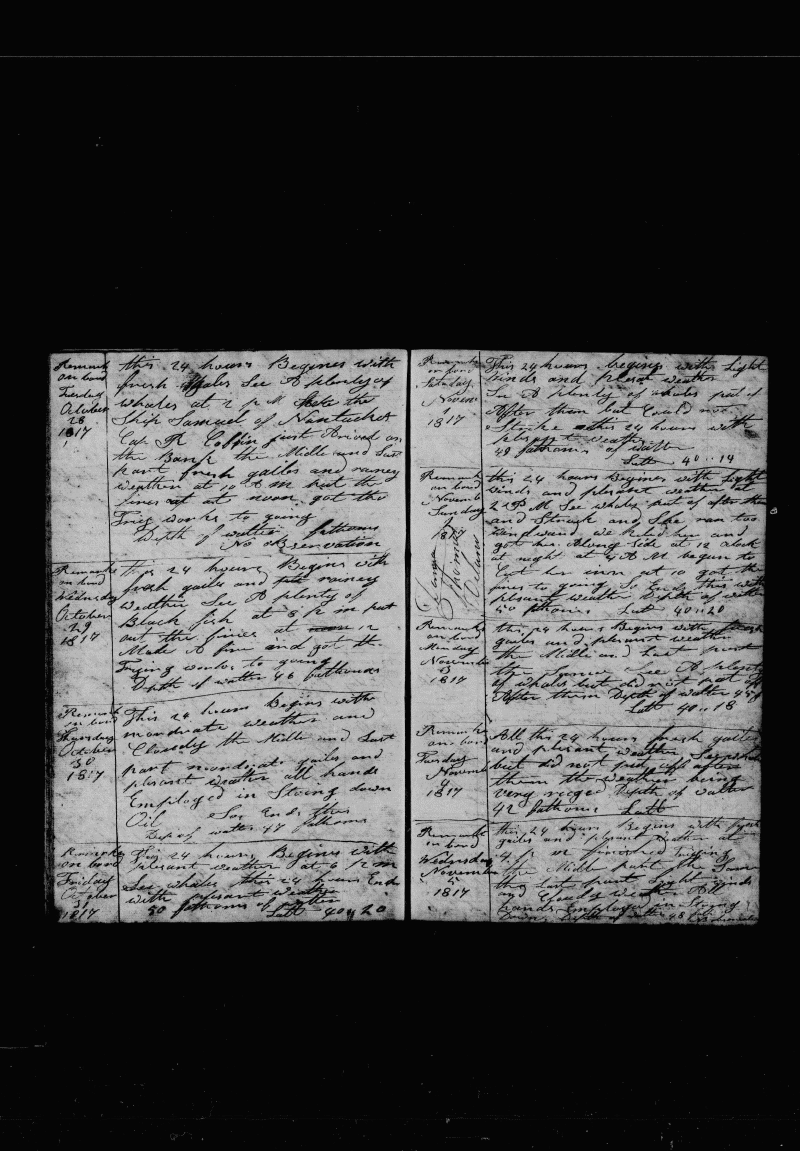 Remarks
on bord
Tuesday
October
28
1817
this 24 hours Begines with
fresh gales See A plenty of
whales at 2 P M the
Ship Samuel of Nantucket
Cap R Coffin first Arived on
the Bank the Midle and Last
part fresh gailes and rainey
weather at 10 A m put the
fires at noon got the
Trieg works to going
Depth of watter fathoms
No observation
Remarks
on bord
Wednsday
October
29
1817
this 24 hours Begins with
fresh gails and rainey
weather See A plenty of
Black fish at 8 P m put
out the fires at 12
Make A fire and got th
Trying works to going
Depth of watter 46 fathoms
Remarks
on bord
Thursday
October
30
1817
This 24 hours Begins with
mordirate weather and
Cloudy the Midle and Last
part gails and
plesant weather all hands
Employed in Stoing down
Oil So Ends this
Dep of watter 47 fathoms
Remarks
on bord
Friday
October
31
1817
This 24 hours Begines with
plesant weather at 4 P m
See whales this 24 hours Ends
with plesant weather
50 fathoms of watter
Latt 40 20
Remarks
on bord
Saturday
Novem
1
1817
This 24 hours begins with Light
winds and plesant weather
See A plenty of whales put of
After them but Could not
Strike this 24 hours with
plesant weather
49 fathoms of watter
Latt 40 .. 19
Remarks
on bord
Novembr
Sunday
2
1817
this 24 hours Begines with Light
winds and plesant weather at
2 P M See whales put of after them
and Struck and She ran too
windward we kild her and
got her Along Side at 12 oclock
at night at A M begun to
Cut her in at 10 got the
fires to going So Ends this with
plesant weather Depth of watter
50 fathoms Latt 40 .. 20
Remarks
on bord
Monday
November
3
1817
this 24 hours Begins with fresh
gails and plesant weather
the Midle and Last part
the Same See A plenty
of whales but did not put off
After them Depth of watter 45
Latt 40 .. 18
Remarks
on bord
Tuesday
Novemb
4
1817
All this 24 hours fresh gailes
and plesant weather See whales
but did not put off after
them the weather being
very ruged Depth of watter
42 fathoms Latt
Remarks
on bord
Wednsday
November
5
1817
this 24 hours Begins with fresh
gailes and plesant weather at
4 finished trying
the Midle part the Same
the Last part Light winds
and Cloudy weather All
hands Employed in Stoing
Down Depth of watter 48